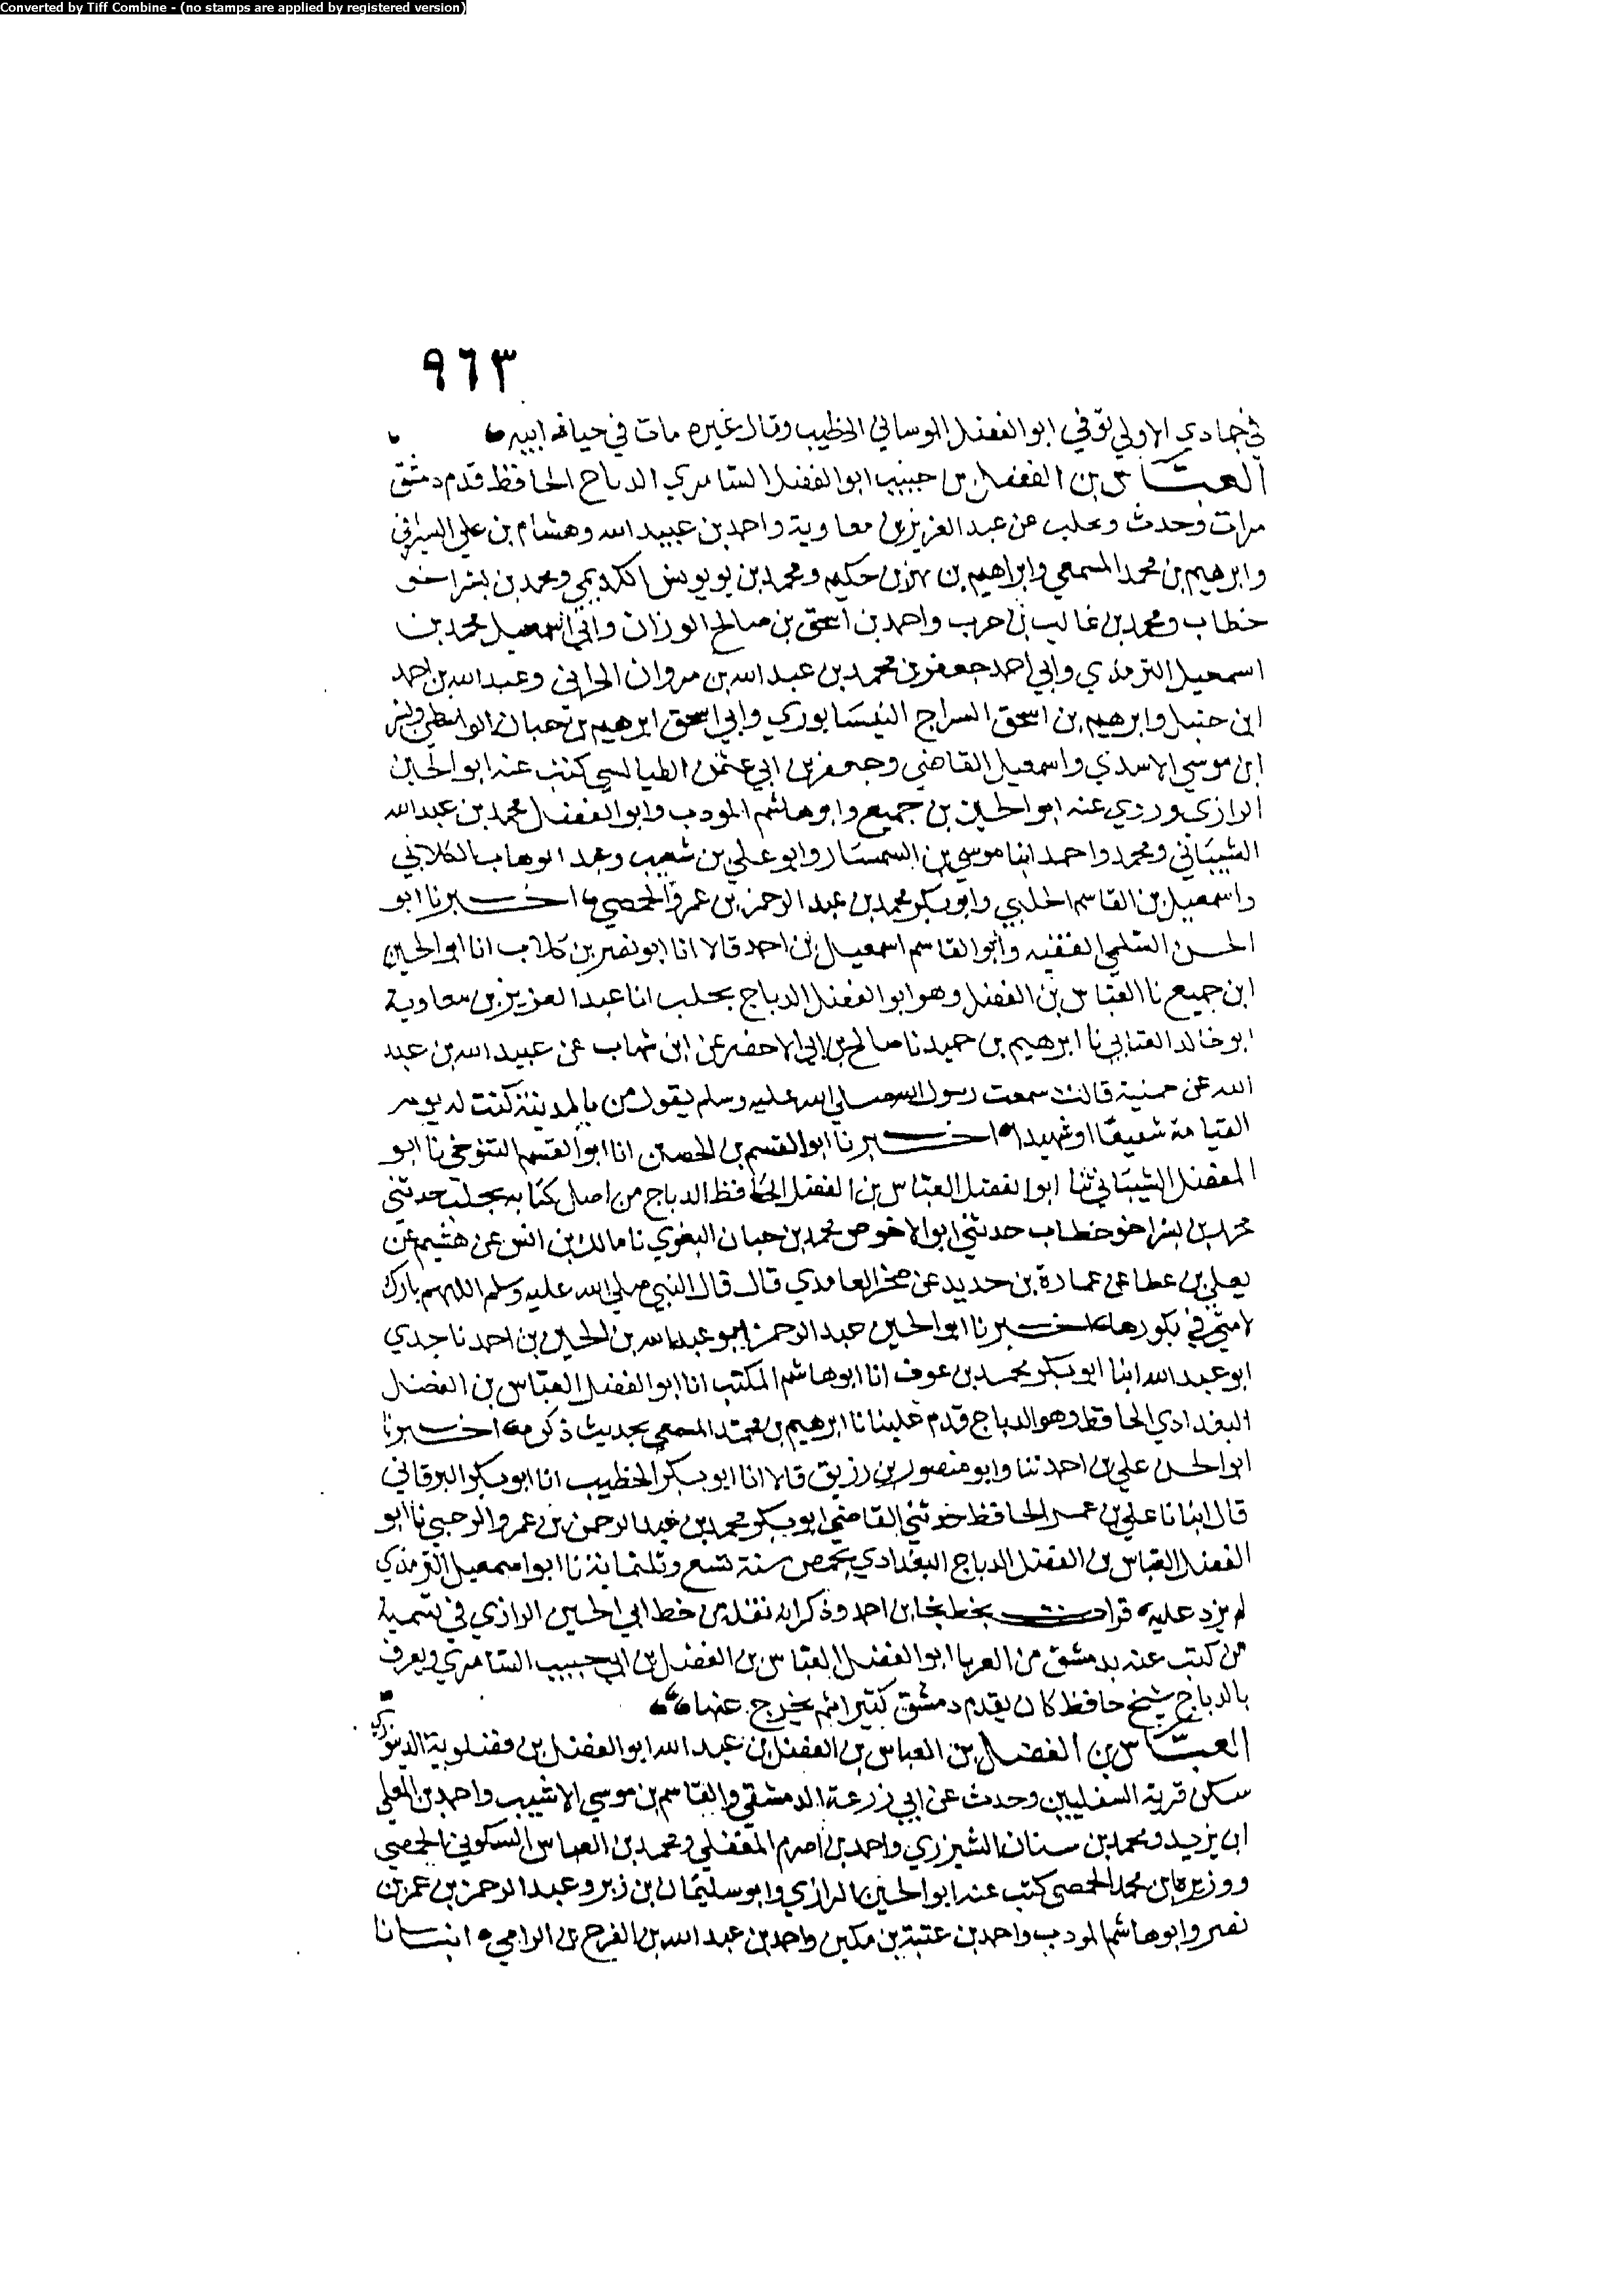 Converted by Tiff Combine - (no stamps are applied by registered version)
٩٦٣
في جمادي الاولي توفي ابو الفضل الوساني الخطيب وقال غيره مات في حياة ابيه
العباس بن الفضل بن حبيب ابو الفضل السامري الدباج الحافظ قدم دمشق
مرات وحدث وبحلب عن عبد العزيز بن معاوية واحمد بن عبيد الله وهشام بن علي السيرافي
وابرهيم بن محمد المسمعي وابراهيم بن بهز بن حكيم ومحمد بن يويونس الكديمي ومحمد بن بشر اخو
خطاب ومحمد بن غالب بن حرب واحمد بن اسحق بن صالح الوزان وابي اسمعيل محمد بن
اسمعيل الترمذي وابي احمد جعفر بن محمد بن عبد الله بن مروان الحراني وعبد الله بن احمد
ابن حنبل وابرهيم بن اسحق السراج النيسابوري وابي اسحق ابرهيم بن حبان الواسطي وبشر
ابن موسي الاسدي واسمعيل القاضي وجعفر بن ابي عثمن الطيالسي كتب عنه ابو الحسين
الرازي وروي عنه ابو الحسين بن جميع وابو هاشم المودب وابو الفضل محمد بن عبد الله
الشيباني ومحمد واحمد ابنا موسي بن السمسار وابو علي بن شعيب وعبد الوهاب الكلابي
واسمعيل بن القاسم الحلبي وابو بكر محمد بن عبد الرحمن بن عمرو الحمصي اخبرنا ابو
الحسن السلمي الفقيه وابو القاسم اسمعيل بن احمد قالا انا ابو نصر بن كلاب انا ابو الحسين
ابن جميع نا العباس بن الفضل وهو ابو الفضل الدباج بحلب انا عبد العزيز بن معاوية
ابو خالد العتابي نا ابرهيم بن حميد نا صالح بن ابي الاخضر عن ابن شهاب عن عبيد الله بن عبد
الله عن صميتة قالت سمعت رسول الله صلي الله عليه وسلم يقول من بالمدينة كنت له يوم
القيامة شفيعا او شهيدا اخبرنا ابو القسم بن الحصين انا ابو القسم التنوخي نا ابو
المفضل الشيباني ثنا ابو الفضل العباس بن الفضل الحافظ الدباج من اصل كتابه بحلب حدثني
محمد بن بشر اخو خطاب حدثني ابو الاخوص محمد بن حبان البغوي نا مالك بن انس عن هشيم عن
يعلي بن عطا عن عمارة بن حديد عن صخر الغامدي قال قال النبي صلي الله عليه وسلم اللهم بارك
لامتي في بكورها اخبرنا ابو الحسين عبد الرحمن بن عبد الله بن الحسين بن احمد نا جدي
ابو عبد الله ابنا ابو بكر محمد بن عوف انا ابو هاشم المكتب انا ابو الفضل العباس بن الفضل
البغدادي الحافظ وهو الدباج قدم علينا نا ابرهيم بن محمد المسمعي بحديث ذكره اخبرنا
ابو الحسن علي بن احمد ثنا وابو منصور بن رزيق قالا انا ابو بكر الخطيب انا ابو بكر البرقاني
قال انبانا علي بن عمر الحافظ حدثني القاضي ابو بكر محمد بن عبد الرحمن بن عمرو الرحبي نا ابو
الفضل العباس بن الفضل الدباج البغدادي بحمص سنة تسع وثلثماية نا ابو اسمعيل الترمذي
لم يزد عليه قرات بخط نجا بن احمد وذكر انه نقله من خط ابي الحسين الرازي في تسمية
من كتب عنه بدمشق من الغربا ابو الفضل العباس بن الفضل بن ابي حبيب السامري ويعرف
بالدباج شيخ حافظ كان يقدم دمشق كثيرا ثم يخرج عنها
العباس بن الفضل بن العباس بن الفضل بن عبد الله ابو الفضل بن فضلوية الدينوري
سكن قرية السفليين وحدث عن ابي زرعة الدمشقي والقاسم بن موسي الاشيب واحمد بن المعلي
ابن يزيد ومحمد بن سنان الشيزري واحمد بن اصرم المغفلي ومحمد بن العباس السكوني الحمصي
ووزيرة بن محمد الحمصي كتب عنه ابو الحسين الرازي وابو سليمان بن زبر وعبد الرحمن بن عمر بن
نصر وابو هاشم المودب واحمد بن عتبة بن مكين واحمد بن عبد الله بن الفرج بن الرامي انبانا